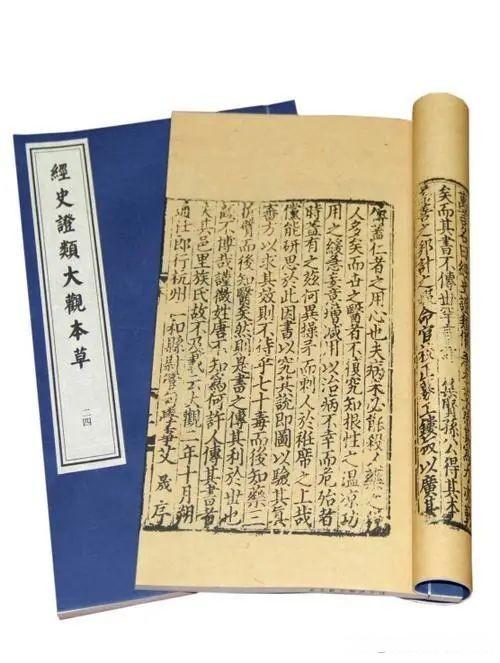 經史證類大觀本草
二四
萬言名曰經史證類
矣而其書不傳世罕言焉集賢孫公得其本
善之邦計之暇命官校正募工鏤板以廣其
傳蓋仁者之用心也夫病未必能殺人藥之殺
人多矣而世之醫者不復究知根性之溫凉功
用之緩急妄意增減用以治病不幸而危殆者
時蓋有之茲何異操矛而刺人於衽席之上哉
儻能研思於此因書以究其説即圖以驗其真
審方以求其效則不待乎七十毒而後知藥三
折臂而後知醫矣然則是書之傳其利於世也
顧不博哉謹微姓唐不知為何許人傳其書者
失其邑里族氏故不及載云大觀二年十月朔
通仕郎行杭州仁和縣尉管句學事艾晟序